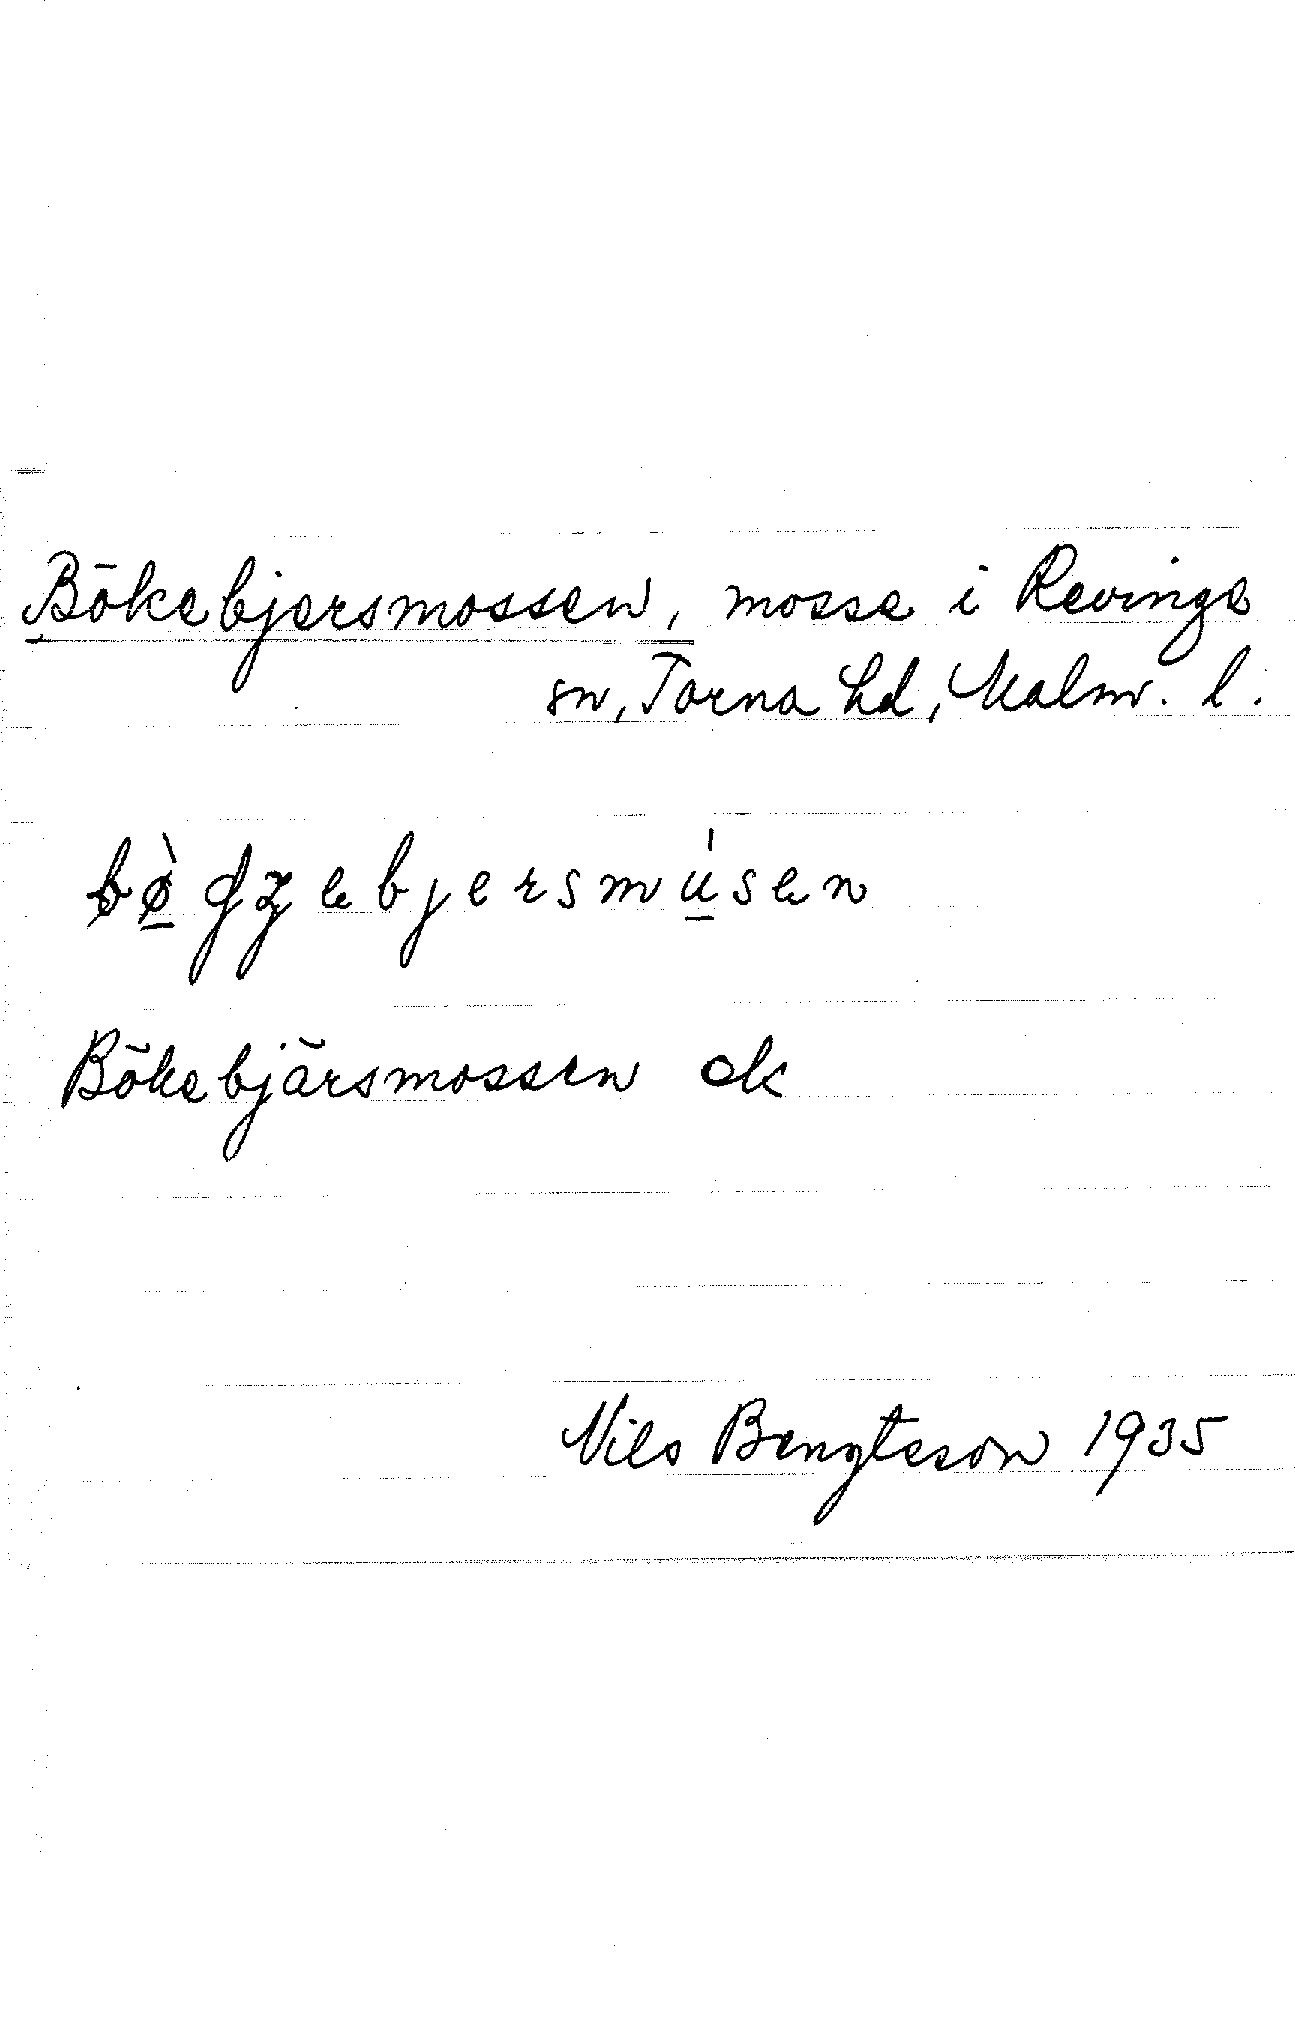 Bökebjersmossen, mosse i Revinge
sn, Torna hd, Malm. l.
bø̀gʒebjersmúsen
Bökebjärsmossen ek
Nils Bengtsson 1935